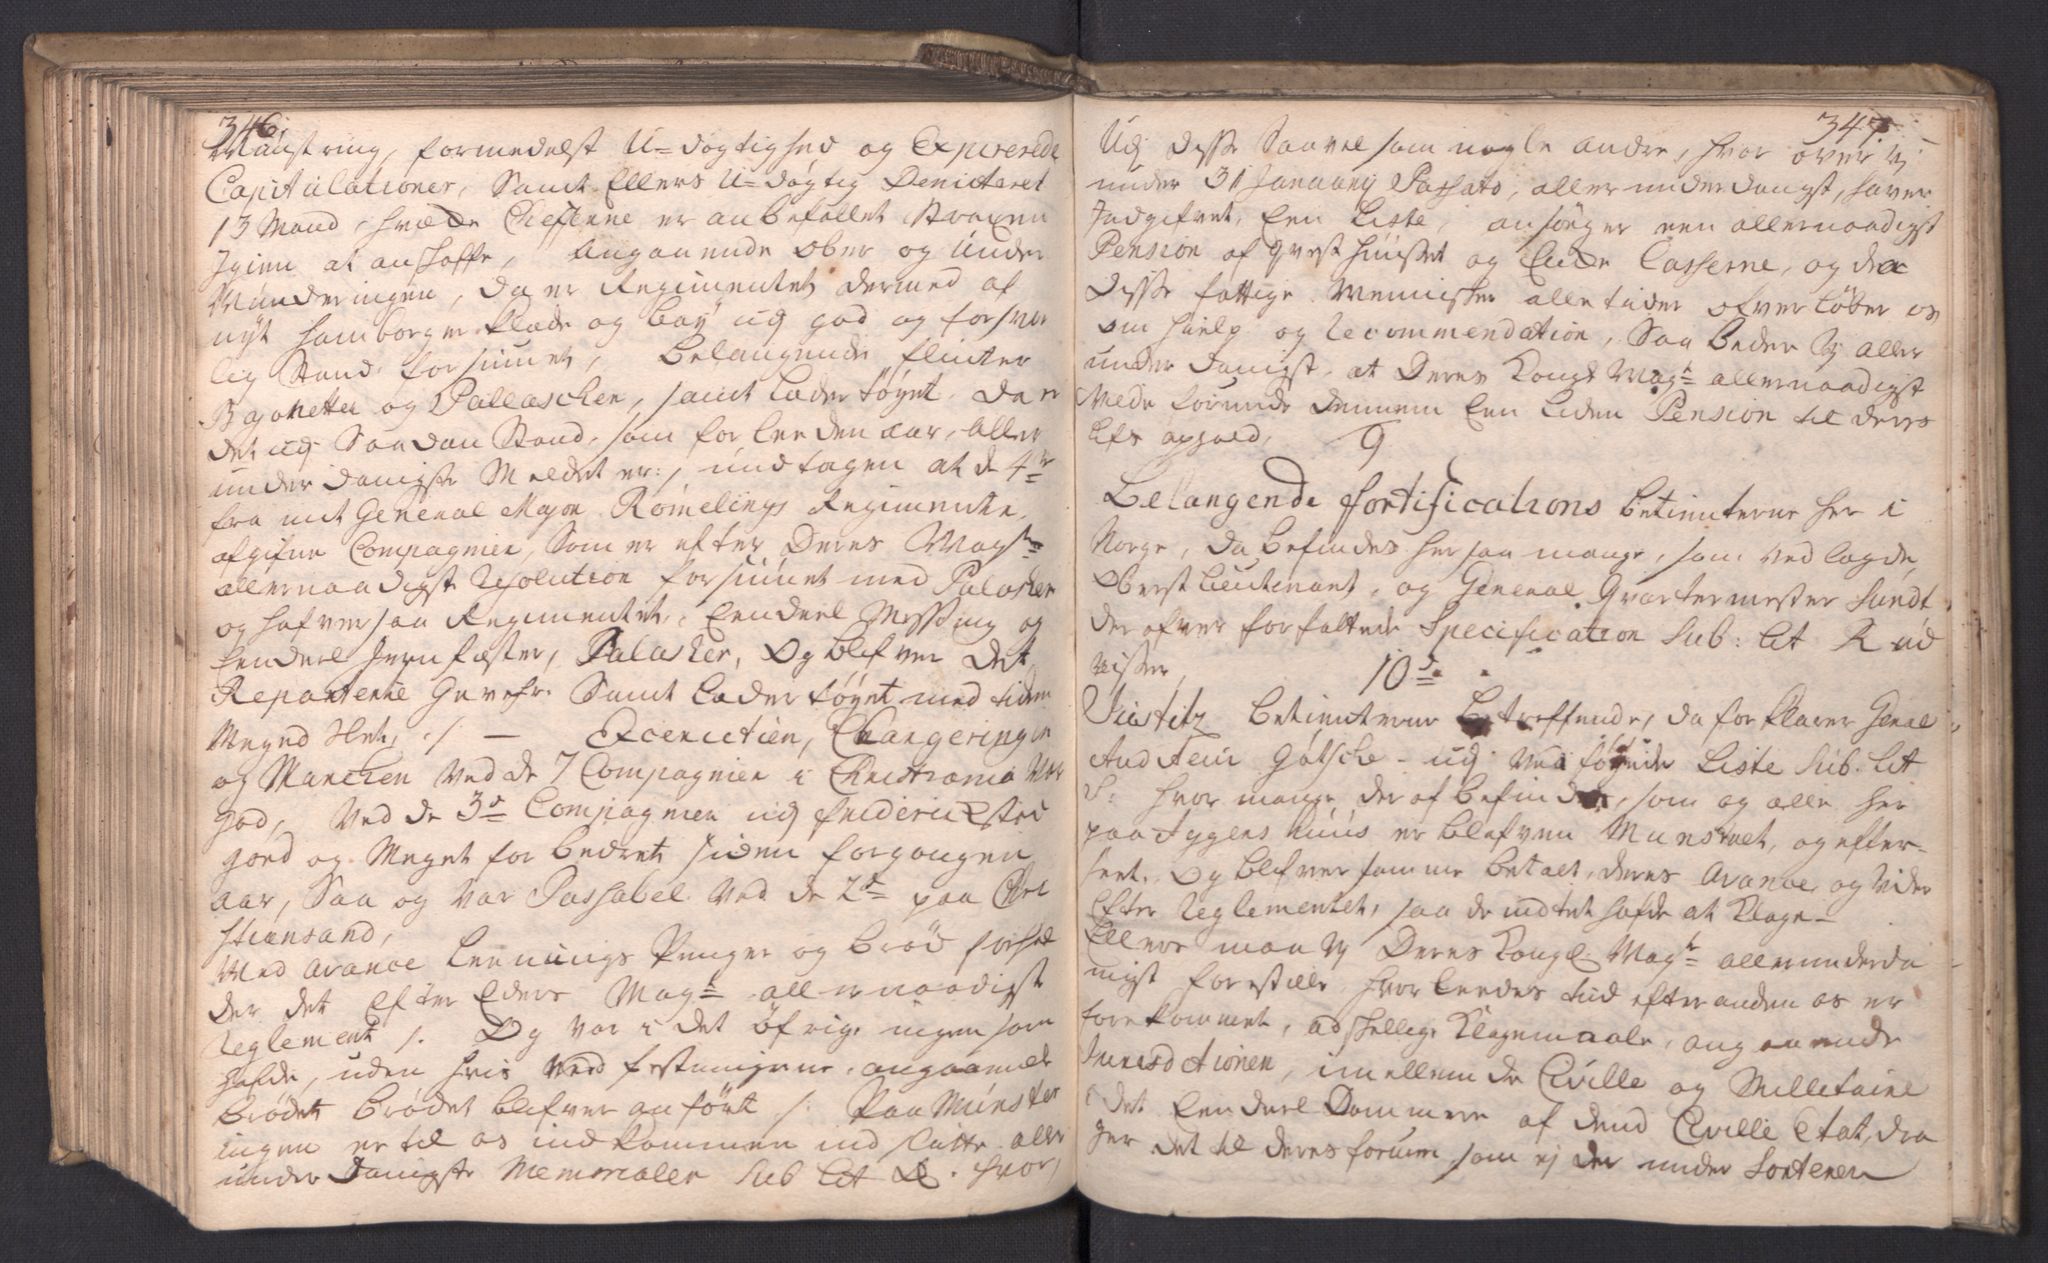 346.
Mönstring, formedelst U=døgtighed og Expirerede
Capitulationer, Samt Ellers U=døgtig Demitteret
13 Mand, hvilke Cheferne er anbefallet Straxen
Igien at anskaffe, Angaaende Ober og Under
Munderingen, da er Regimentet dermed af
nyt hamborger klæde og bay udj god og forsvar
lig Stand forsiunet, Belangende flinter
Bajonetter og Pallascher, samt Lædertøyet, da er
det udj Saadan Stand, som forleeden aar, aller
underdanigste Meldet er, undtagen at de 4re
fra mit General Major Römelings Regimente
afgifne Compagnier, Som er efter Deres Mayts
allernaadigste Resolution forsiunet med Palasker
og hafver saa Regimentet, Eendeel Messing og
Eendeel Jernfæster, Palasker, Og blef ver det
Reparerede Gevehr Samt Lædertøyet med tiden
Meget Slet, ./. — Exercitien, Chargeringen
og Marchen Ved de 7 Compagnier i Christiania Var
god, Ved de 3de Compagnier udj friderichstad
goed og Meget forbedret siden forgangen
Aar, Saa og Var Passabel Ved de 2de paa Chri
stiansand,
Med Avance Leenings Penger og Brød forhol
der det Efter Eders Mayts allernaadigste
Reglement ./. Og var i det öfrige ingen som
hafde, uden hvis Ved festningerne, angaaende
brødet blef ver anført ./. Paa Mönster
ingen er til os indkommen indsluttede aller
underdanigste Memorialer Sub Lit Q. hvor,
347.
Udj disse Saavelsom nogle andre, hvor over Vj
under 31 January Passato, allerunderdanigst, haver
Indgifvet, Een Liste, ansöger een allernaadigst
Pension af qvesthuuset og Cassserne, og da
disse fattige Mennisker alletider ofverløber os
om hielp og Recommendation, Saa beder Vj aller
underdanigst, at Deres Kongl Mayt allernaadigst
Vilde forunde dennem Een Liden Pension til deres
Lifs ophold,
9
Belangende fortifications betienterne her i
Norge, da befindes her saa mange, som vedlagde
Oberstleutenant, og General Qvartermester Sundt
derofver forfattede Specification Sub: Lit R ud
viser,
10de
Justitz betienterne betreffende, da forklarer Genral
Auditeur Götsche - udj vedföyede Liste Sub. Lit
S: hvor mange deraf befindes, som og alle her
paa Aggers huus er blefven Munstret, og efter-
seet. Og blef ver samme betalt, deres Avance og Vider
Efter Reglementet, saa de indtet hafde at Klage-
Ellers maa Vj Deres Kongl. Mayt allerunderda
nigst forestille hvorleedes tiid efter anden os er
forekommet, adskellige Klagemaale, angaaende
Jurisdictionen, imellem de Civille og Millitaire
i det Eendeel Dommere af dend Civille Etat, dra
ger det til deres forum som ej der under Sorterer